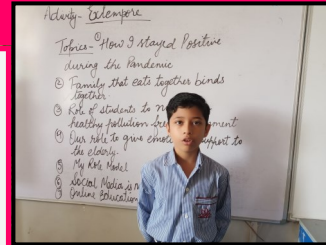 Activity- Extempore
Topics- ① How I stayed Positive
during the Pandemic
② Family that eats together binds
together.
③ Role of students to
healthy pollution
④ Our role to give support to
the elderly.
⑤ My Role Model
⑥ Social Media is
⑦ Online Education